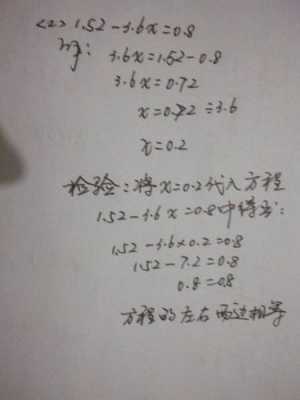 <2> 1.52-3.6x=0.8
解: 3.6x=1.52-0.8
3.6x=0.72
x=0.72÷3.6
x=0.2
检验:将x=0.2代入方程
1.52-3.6x=0.8中得出:
1.52-3.6×0.2=0.8
1.52-7.2=0.8
0.8=0.8
方程的左右两边相等